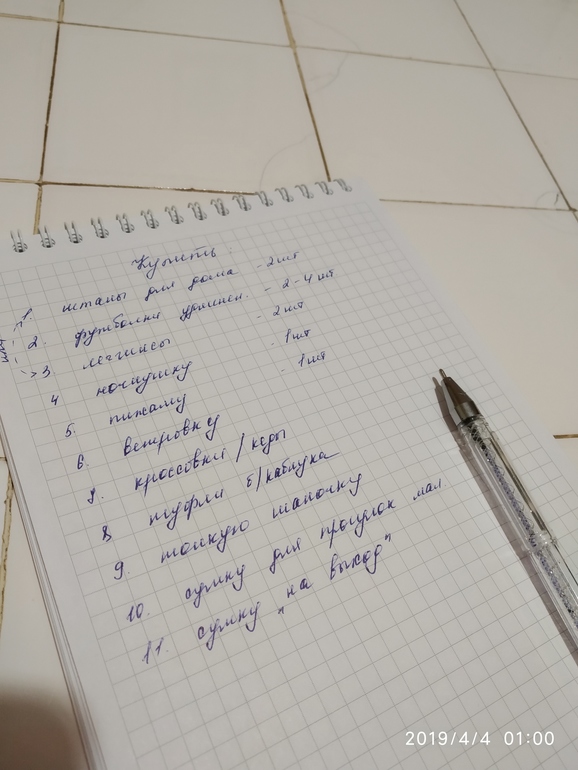 Купить:
1. штаны для дома - 2шт
2. футболки удлинен. - 2-4 шт
3. леггинсы - 2шт
4 ночнушку - 1шт
5. пижаму - 1шт
6. ветровку
7. кроссовки / кеды
8 туфли б/каблука
9. тонкую шапочку
10. сумку для прогулок мал
11. сумку „на выход"
2019/4/4 01:00